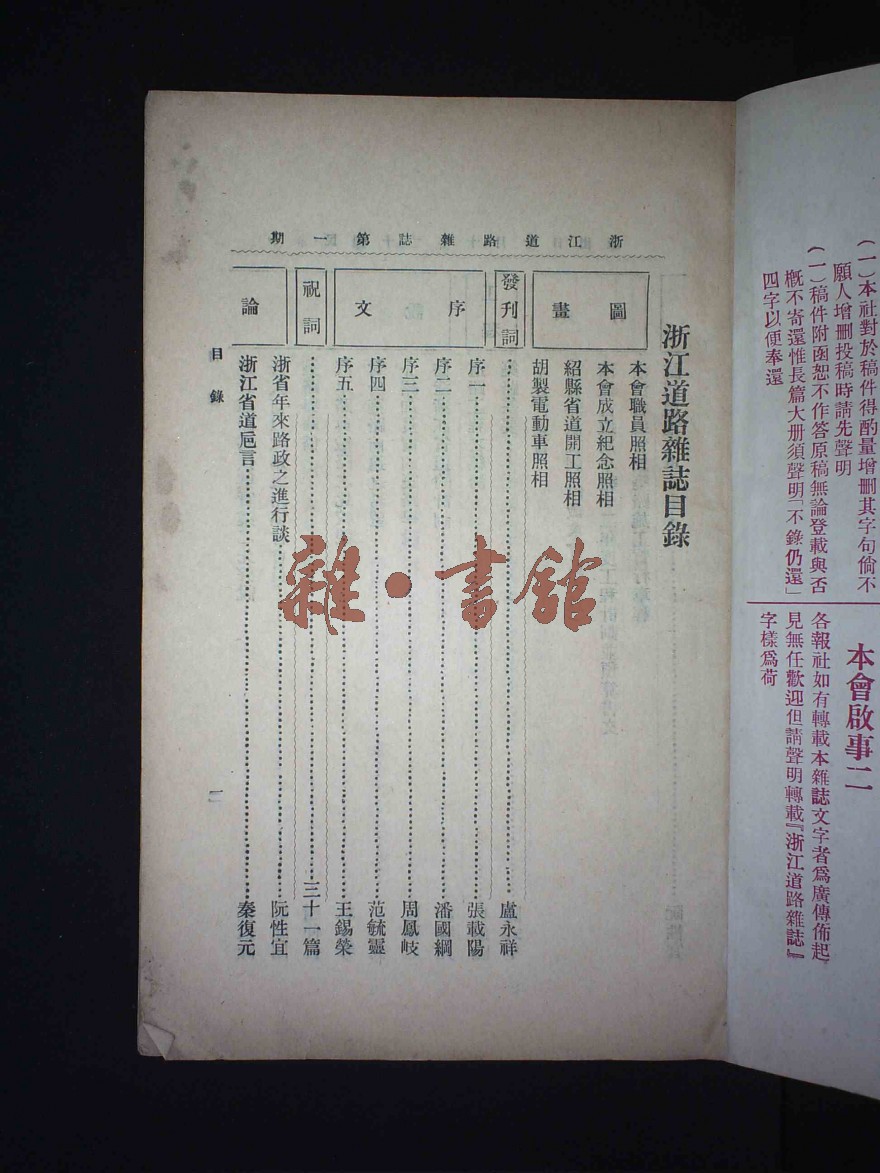 (一)本社對於稿件得酌量增刪其字句倘不
願人增刪投稿時請先聲明
(一)稿件附函恕不作答原稿無論登載與否
槪不寄還惟長篇大册須聲明「不錄仍還」
四字以便奉還
本會啟事二
各報社如有轉載本雜誌文字者爲廣傳佈起
見無任歡迎但請聲明轉載『浙江道路雜誌』
字樣爲荷
浙江道路雜誌第一期
浙江道路雜誌目錄
圖畫
本會職員照相
本會成立紀念照相
紹縣省道開工照相
胡製電動車照相
發刊詞……盧永祥
序文
序一……張載陽
序二……潘國綱
序三……周鳳岐
序四……范毓靈
序五……王錫榮
祝詞……三十一篇
論
浙省年來路政之進行談……阮性宜
浙江省道巵言……秦復元
目錄
一
雜·書館